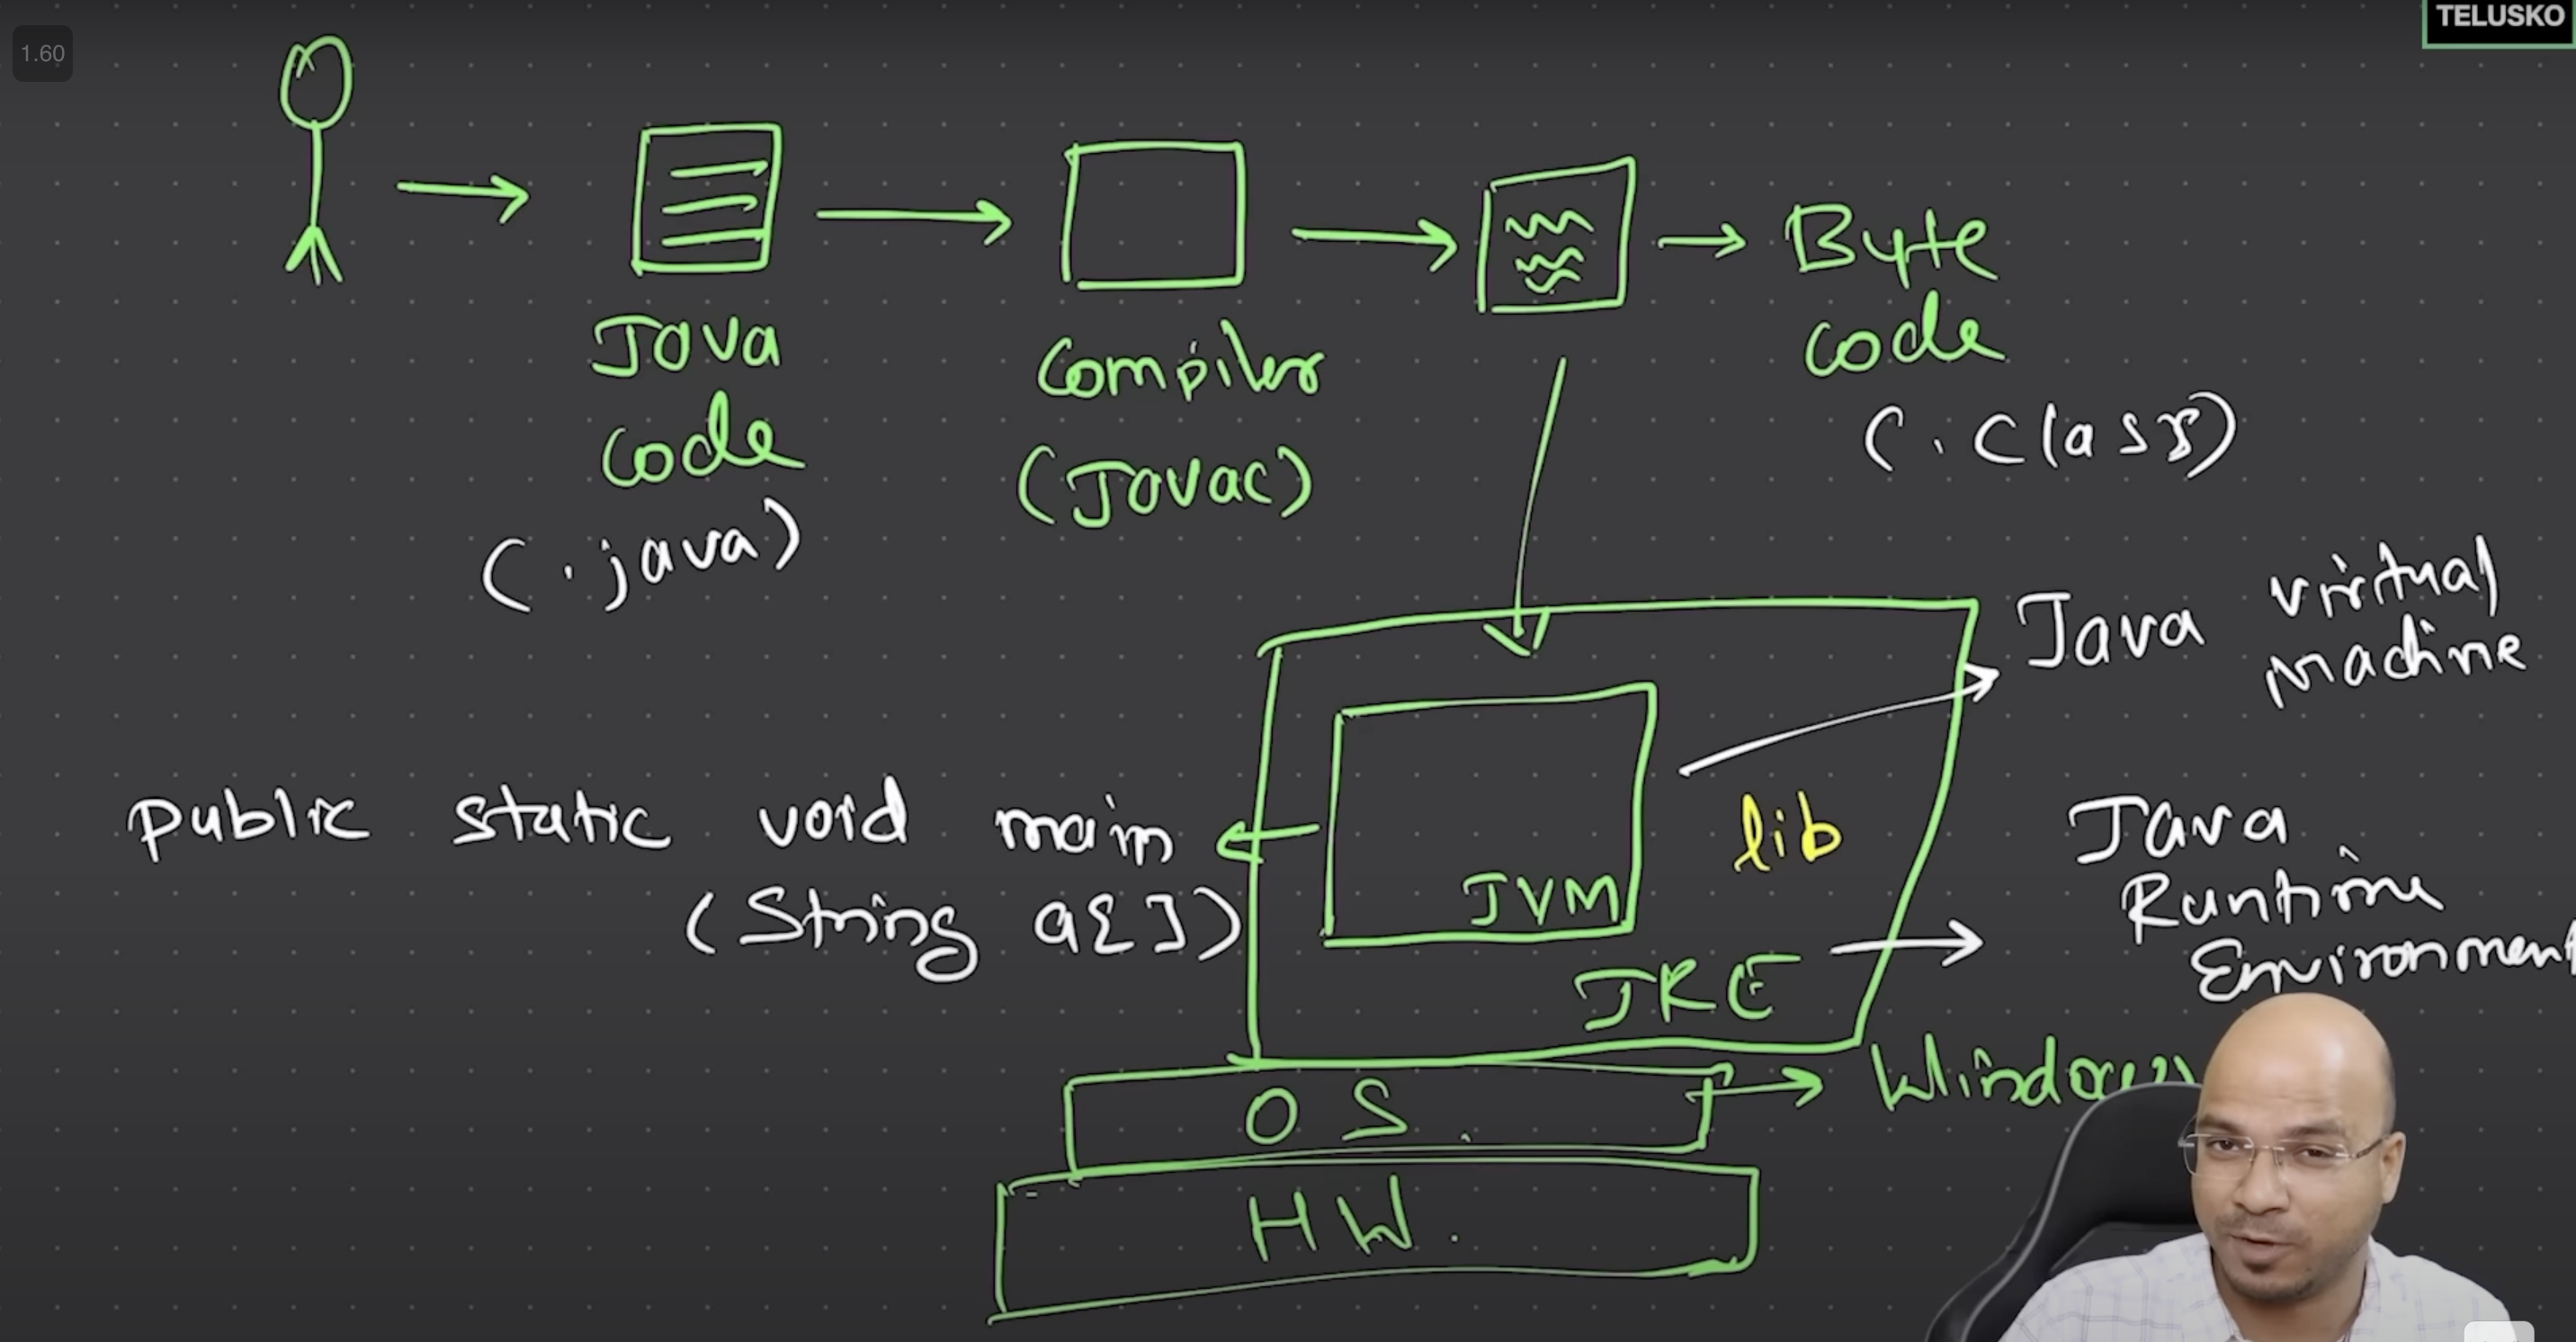 1.60
TELUSKO
Java
Code
(.java)
Compiler
(Javac)
Byte
Code
(.class)
Java virtual
Machine
public static void main
(String a[])
lib
JVM
Java
Runtime
Environment
JRE
OS.
Windows
HW.